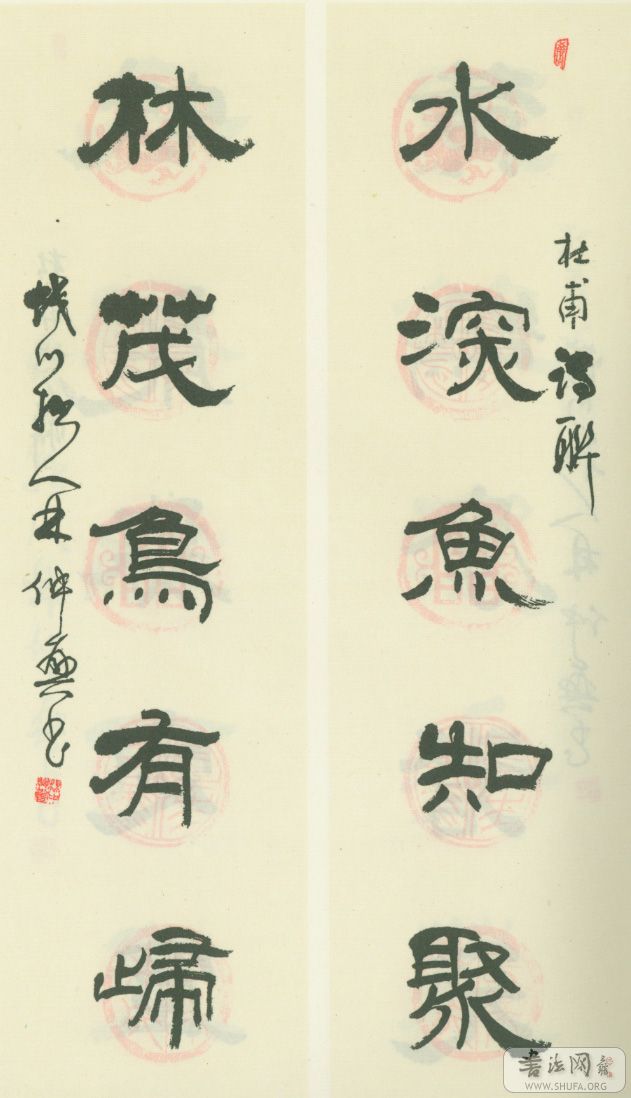 水深魚知聚
杜甫詩聯
林茂鳥有歸
林仲興书
書法网
WWW.SHUFA.ORG